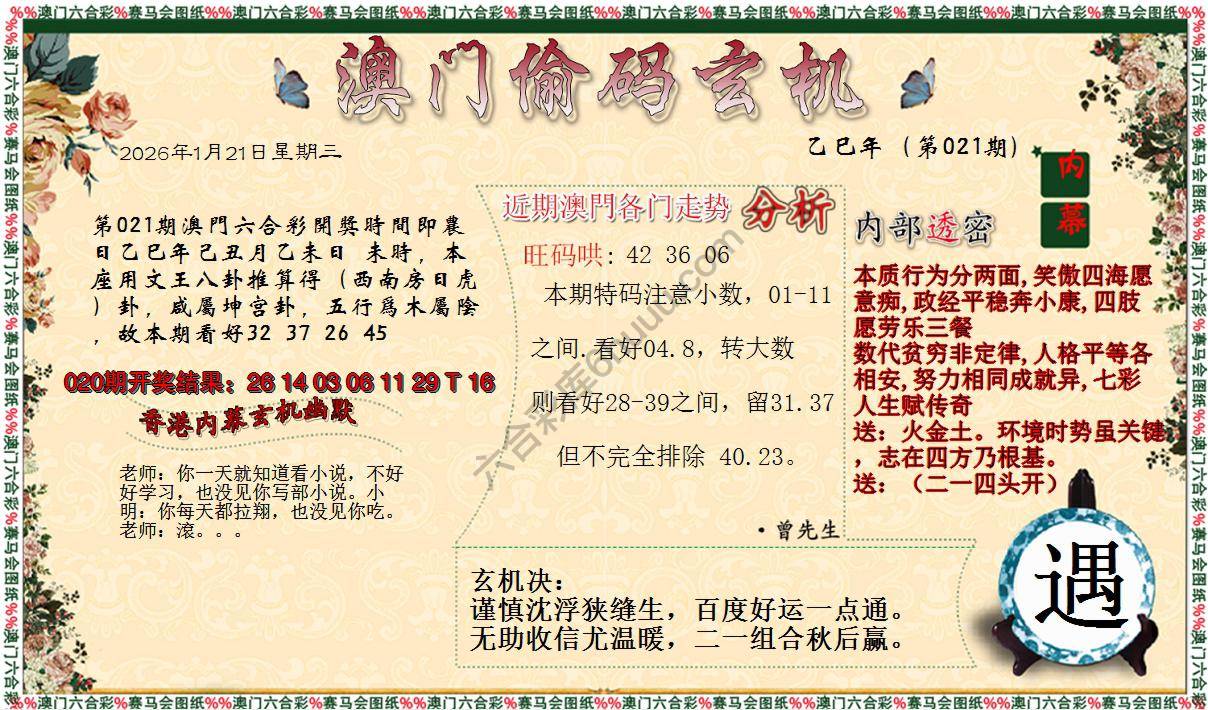 %%澳门六合彩%赛马会图纸%%澳门六合彩%赛马会图纸%%澳门六合彩%赛马会图纸%%澳门六合彩%赛马会图纸%%澳门六合彩%赛马会图纸%%澳门六合彩%赛马会图纸%%
澳门偷码玄机
2026年1月21日星期三
乙巳年（第021期）
内
幕
第021期澳門六合彩開獎時間即農
日乙巳年己丑月乙未日 未時，本
座用文王八卦推算得（西南房日虎
）卦，咸屬坤宫卦，五行爲木屬陰
，故本期看好32 37 26 45
020期开奖结果：26 14 03 06 11 29 T 16
香港内幕玄机幽默
老师：你一天就知道看小说，不好
好学习，也没见你写部小说。小
明：你每天都拉翔，也没见你吃。
老师：滚。。。
近期澳門各门走势 分析
旺码哄: 42 36 06
本期特码注意小数，01-11
之间.看好04.8，转大数
则看好28-39之间，留31.37
但不完全排除 40.23。
·曾先生
内部透密
本质行为分两面,笑傲四海愿
意痴,政经平稳奔小康,四肢
愿劳乐三餐
数代贫穷非定律,人格平等各
相安,努力相同成就异,七彩
人生赋传奇
送：火金土。环境时势虽关键
，志在四方乃根基。
送：（二一四头开）
玄机决：
谨慎沈浮狭缝生，百度好运一点通。
无助收信尤温暖，二一组合秋后赢。
遇
%%澳门六合彩%赛马会图纸%%澳门六合彩%赛马会图纸%%澳门六合彩%赛马会图纸%%澳门六合彩%赛马会图纸%%澳门六合彩%赛马会图纸%%澳门六合彩%赛马会图纸%%